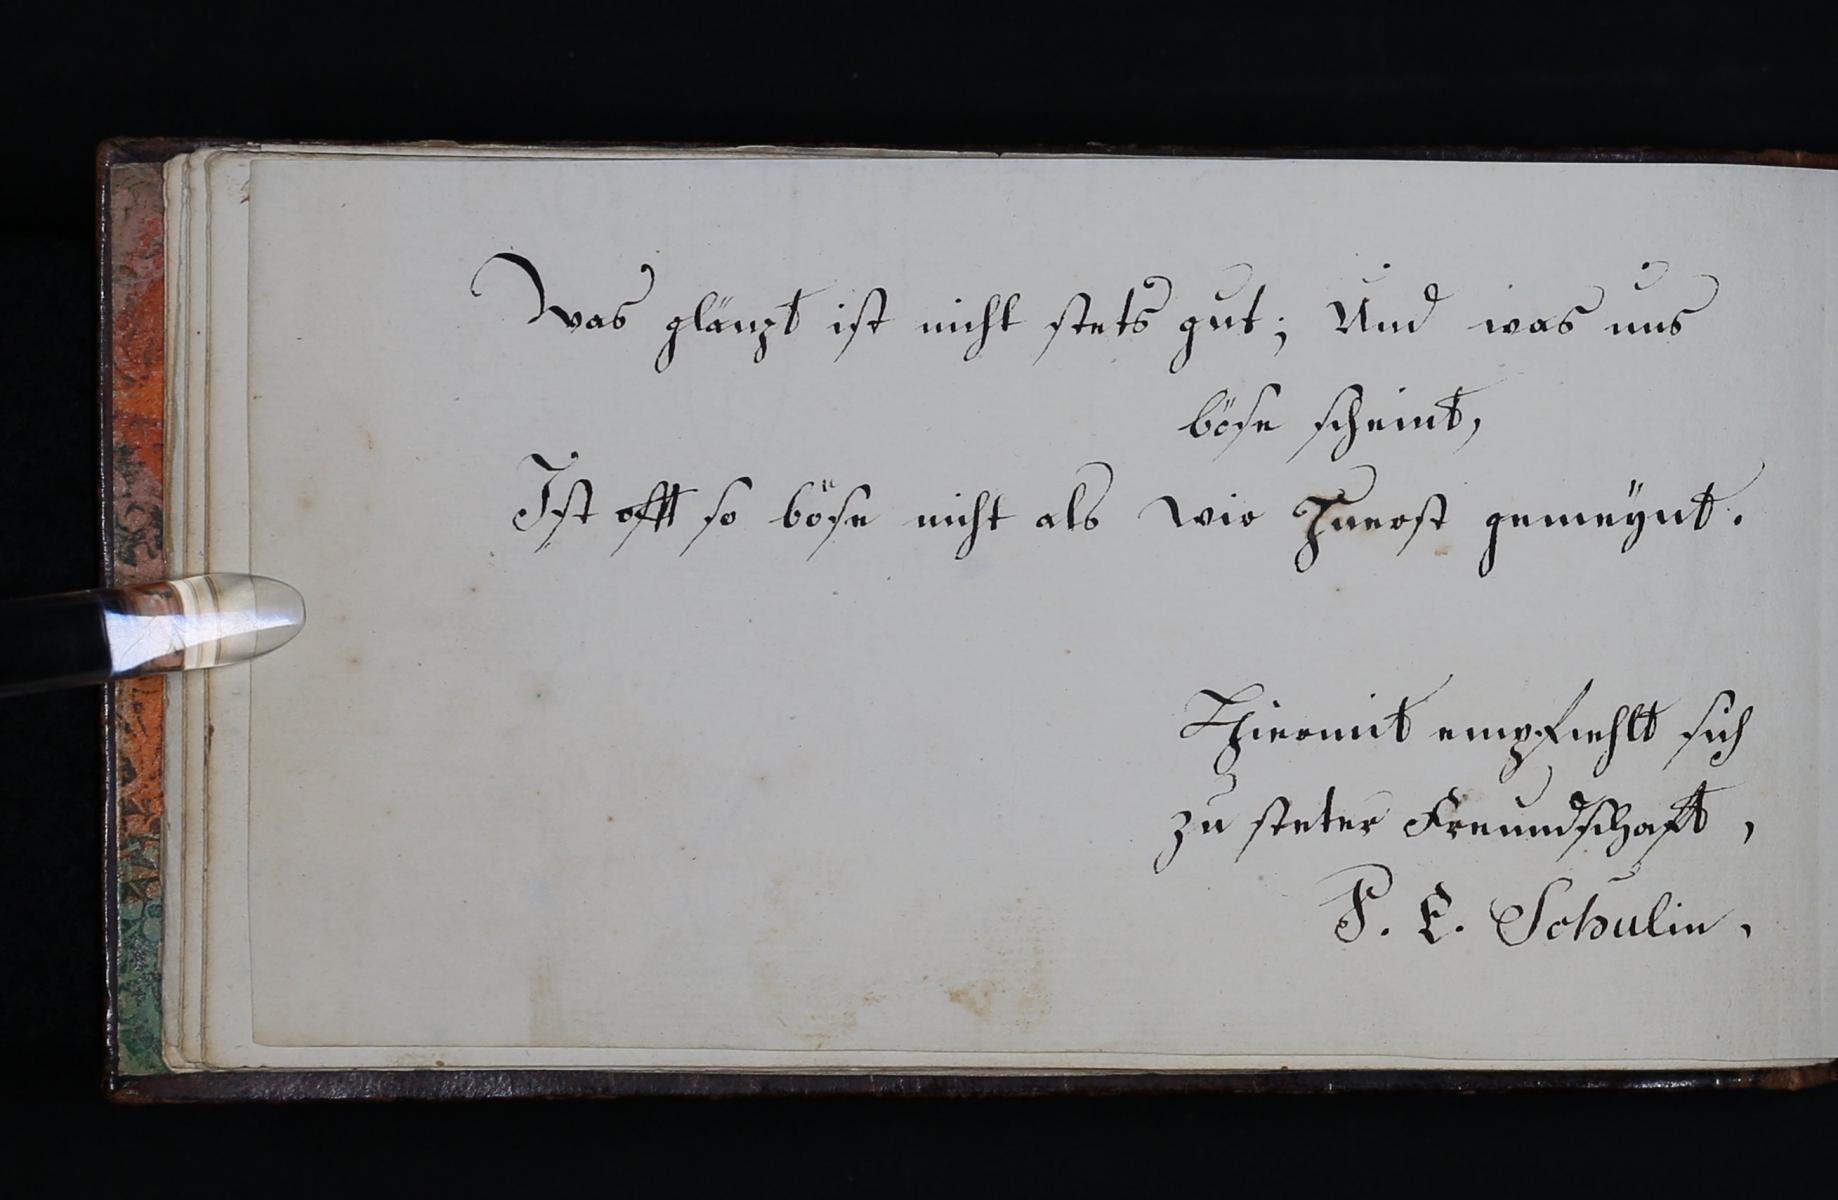 Was glänzt ist nicht stets gut; Und was uns
böse scheint,
Ist offt so böse nicht als wir Zuerst gemeÿnt.
Hiermit empfiehlt sich
zu steter Freundschafft,
P. E. Schulin.